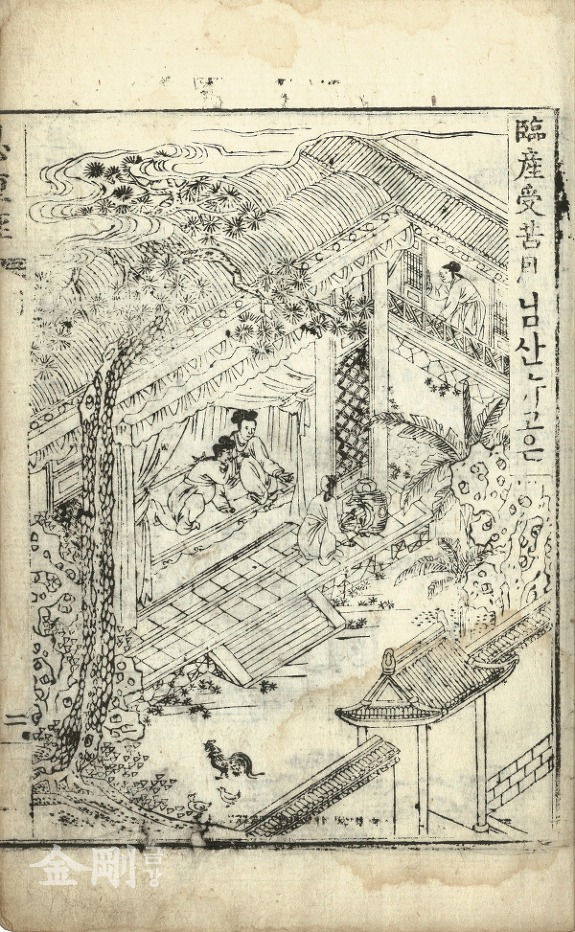 臨産受苦 님산 고은
二
金剛 금강